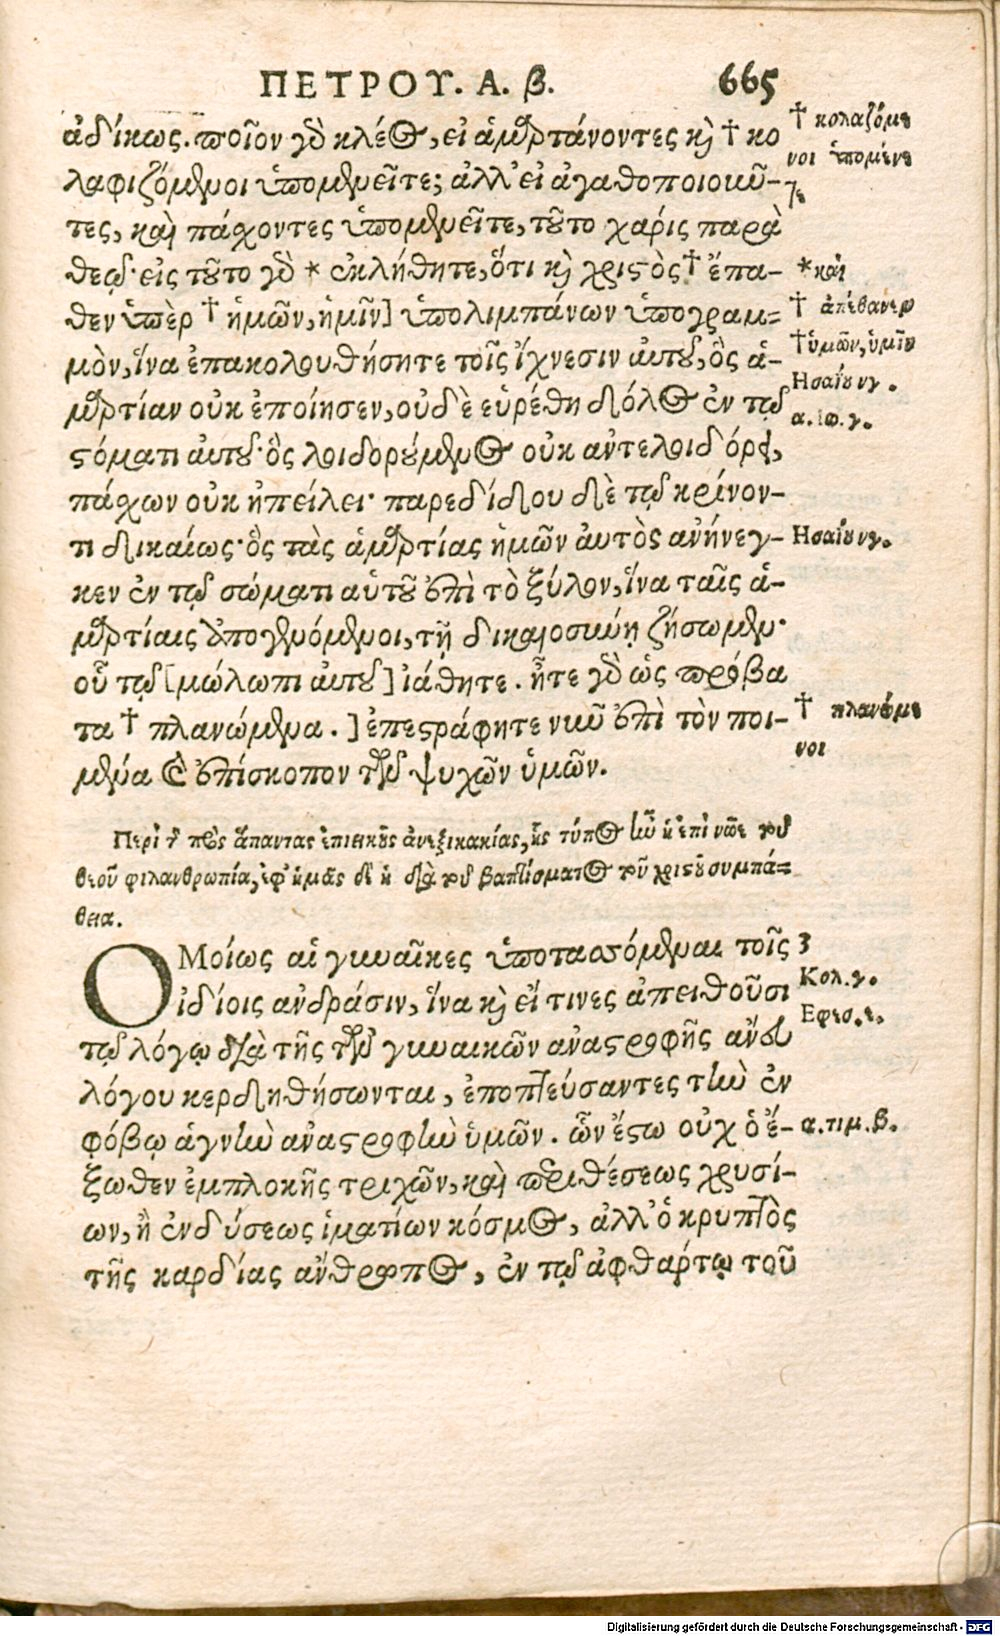 ΠΕΤΡΟΥ. Α. β. 665
ἀδίκως. ποῖον γὸ κλέος, εἰ ἁμαρτάνοντες κὶ † κο
λαφιζόμενοι ὑπομενεῖτε; ἀλλ' εἰ ἀγαθοποιοιοῦν-
τες, καὶ πάσχοντες ὑπομενεῖτε, τοῦτο χάρις παρὰ
θεῷ· εἰς τοῦτο γὸ * ἐκλήθητε, ὅτι κὶ χριστὸς † ἔπα-
θεν ὑπὲρ † ἡμῶν, ἡμῖν] ὑπολιμπάνων ὑπογραμ=
μὸν, ἵνα ἐπακολουθήσητε τοῖς ἴχνεσιν αὐτοῦ, ὃς ἁ-
μαρτίαν οὐκ ἐποίησεν, οὐδὲ εὑρέθη δόλος ἐν τῷ
στόματι αὐτοῦ· ὃς λοιδορούμενος οὐκ ἀντελοιδόρει,
πάσχων οὐκ ἠπείλει· παρεδίδου δὲ τῷ κρίνον-
τι δικαίως· ὃς τὰς ἁμαρτίας ἡμῶν αὐτὸς ἀνήνεγ-
κεν ἐν τῷ σώματι αὑτοῦ ἐπὶ τὸ ξύλον, ἵνα ταῖς ἁ-
μαρτίαις ἀπογενόμενοι, τῇ δικαιοσύνῃ ζήσωμεν·
οὗ τῷ [μώλωπι αὐτοῦ] ἰάθητε. ἦτε γὸ ὡς πρόβα
τα † πλανώμενα.] ἐπεστράφητε νῦν ἐπὶ τὸν ποι-
μένα καὶ ἐπίσκοπον τῶν ψυχῶν ὑμῶν.
† κολαζόμε
νοι ὑπομένε
τε
*καὶ
† ἀπέθανεν
†ὑμῶν, ὑμῖν
Ησαΐου νγ.
α. Ιω. γ.
Ησαΐου νγ.
† πλανώμε
νοι
Περὶ τῆς πρὸς ἅπαντας ἐπιεικοῦς ἀνεξικακίας, ἧς τύπος ἦν ἡ ἐπὶ νῶε τοῦ
θεοῦ φιλανθρωπία, ἐφ' ἡμᾶς δὲ ἡ διὰ τοῦ βαπτίσματος τοῦ χριστοῦ συμπά=
θεια.
ΟΜοίως αἱ γυναῖκες ὑποτασσόμεναι τοῖς 3
ἰδίοις ἀνδράσιν, ἵνα κὶ εἴ τινες ἀπειθοῦσι
τῷ λόγῳ διὰ τῆς τῶν γυναικῶν ἀναστροφῆς ἄνευ
λόγου κερδηθήσωνται, ἐποπτεύσαντες τὴν ἐν
φόβῳ ἁγνὴν ἀναστροφὴν ὑμῶν. ὧν ἔστω οὐχ ὁ ἔ-
ξωθεν ἐμπλοκῆς τριχῶν, καὶ περιθέσεως χρυσί-
ων, ἢ ἐνδύσεως ἱματίων κόσμος, ἀλλ' ὁ κρυπτὸς
τῆς καρδίας ἄνθρωπος, ἐν τῷ ἀφθάρτῳ τοῦ
Κολ. γ.
Εφεσ. ε.
α. τιμ. β.
Digitalisierung gefördert durch die Deutsche Forschungsgemeinschaft - DFG